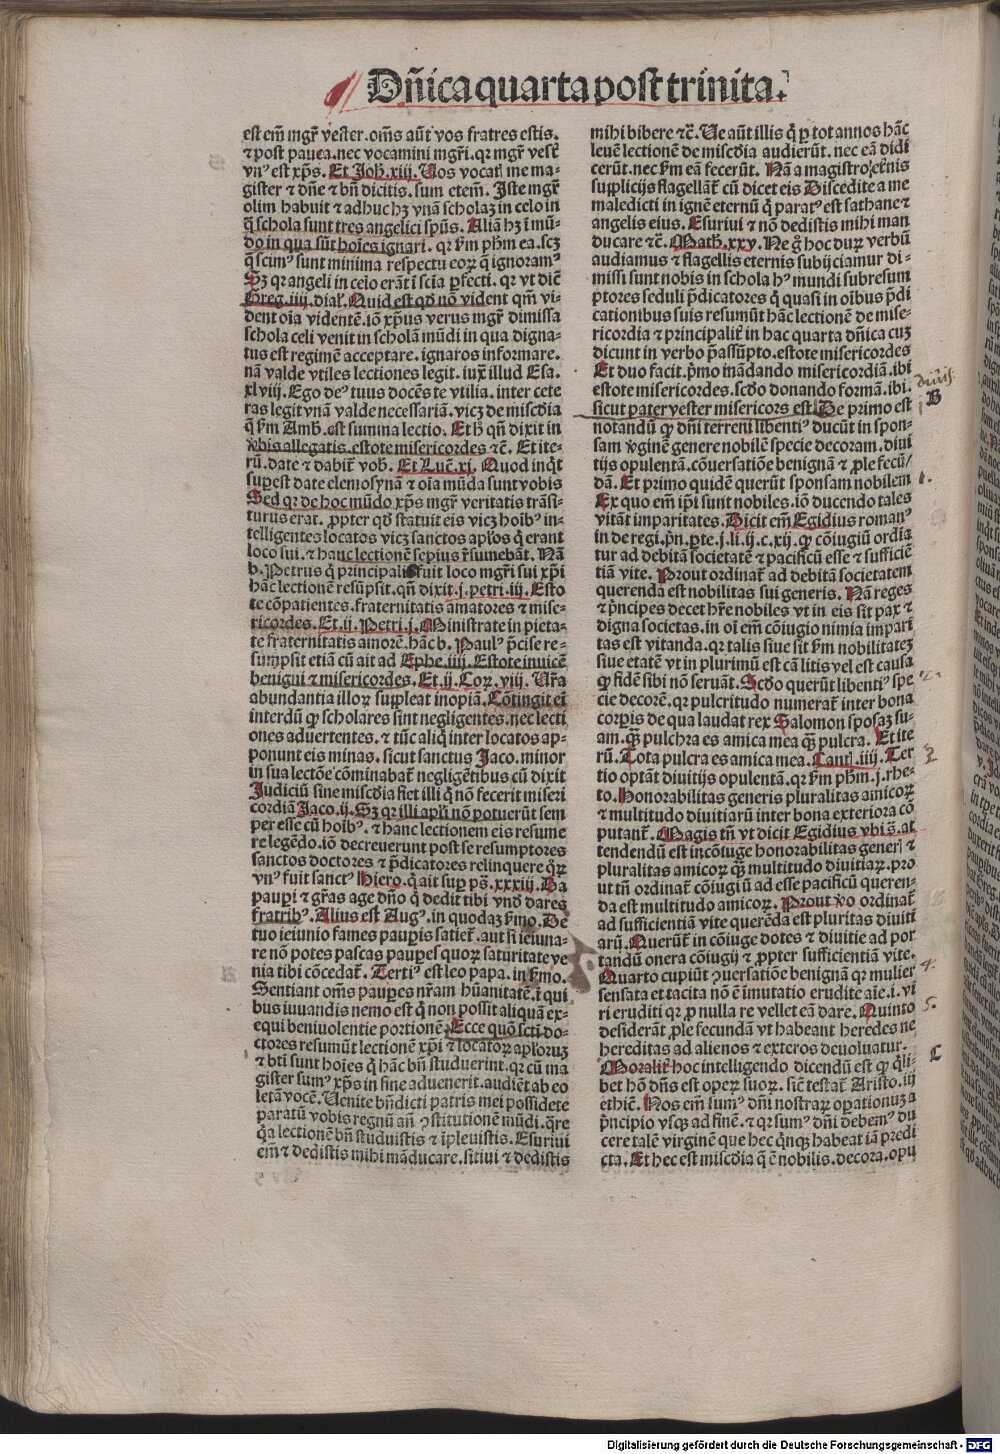 Dn̄ica quarta post trinita.
est em̄ mgr̄ vester. om̄s aūt vos fratres estis.
⁊ post pauca. nec vocamini mgr̄i. qꝛ mgr̄ vesť
vnꝰ est xp̄s. Et Joh̄. xiij. Uos vocat me ma-
gister ⁊ dn̄e ⁊ bn̄ dicitis. sum etem̄. Iste mgr̄
olim habuit ⁊ adhuc hꝫ vnā scholaꝫ in celo in
q̄ schola sunt tres angelici spūs. Aliā hꝫ ī mū-
do in qua sūt hoīes ignari. qꝛ ẜm ph̄m ea. scꝫ
q̄ scimꝰ sunt minima respectu eoꝝ q̄ ignoramꝰ
Sꝫ qꝛ angeli in celo erāt ī scia ꝑfecti. qꝛ vt diẽ
Greg. iiij. dial̄. Quid est qd̄ nō vident qm̄ vi-
dent oīa videntē. iō xp̄us verus mgr̄ dimissa
schola celi venit in scholā mūdi in qua digna-
tus est regimē acceptare. ignaros informare.
nā valde vtiles lectiones legit. iuxͭ illud Esa.
xlviij. Ego deꝰ tuus docēs te vtilia. inter cete
ras legit vnā valde necessariā. vicꝫ de misc̄dia
q̄ ẜm Amb̄. est summa lectio. Et h̄ qn̄ dixit in
v̄bis allegatis. estote misericordes ⁊c̄. Et ite-
rū. date ⁊ dabit̄ vob̄. Et Luc̄. xj. Quod inq̄t
suꝑest date elemosynā ⁊ oīa mūda sunt vobis
Sed qꝛ de hoc mūdo xp̄s mgr̄ veritatis trāsi-
turus erat. ꝓpter qd̄ statuit eis vicꝫ hoībꝰ in-
telligentes locatos vicꝫ sanctos apl̄os q̄ erant
loco sui. ⁊ hanc lectionē sepius r̄sumebāt. Nā
b. Petrus q̄ principalis fuit loco mgr̄i sui xp̄i
hāc lectionē resūpsit. qn̄ dixit. j. petri. iij. Esto
te cōpatientes. fraternitatis amatores ⁊ mise-
ricordes. Et. ij. Petri. j. Ministrate in pieta-
te fraternitatis amorē. hāc b. Paulꝰ p̄cise re-
sumpsit etiā cū ait ad Ephe. iiij. Estote inuicē
benigni ⁊ misericordes. Et. ij. Coꝝ. viij. Ur̄a
abundantia illoꝝ suppleat inopiā. Cōtingit eī
interdū ꝙ scholares sint negligentes. nec lecti
ones aduertentes. ⁊ tūc aliq̄ inter locatos ap-
ponunt eis minas. sicut sanctus Jaco. minor
in sua lectōe cōminabat̄ negligētibus cū dixit
Judiciū sine misc̄dia fiet illi q̄ nō fecerit miseri
cordiā Jaco. ij. Sꝫ qꝛ illi apl̄i nō potuerūt sem
per esse cū hoībꝰ. ⁊ hanc lectionem eis resume
re legēdo. iō decreuerunt post se resumptores
sanctos doctores ⁊ p̄dicatores relinquere q̄ꝝ
vnꝰ fuit sanctꝰ Hiero. q̄ ait suꝑ ps̄. xxxiij. Da
pauꝑi ⁊ gr̄as age dn̄o q̄ dedit tibi vnd̄ dares
fratribꝰ. Alius est Augꝰ. in quodaꝫ ẜmo. De
tuo ieiunio fames pauꝑis satiet̄. aut si ieiuna-
re nō potes pascas pauꝑes quoꝝ saturitate ve
nia tibi cōcedat̄. Tertiꝰ est leo papa. in ẜmo.
Sentiant om̄s pauꝑes nr̄am hūanitatē. ī qui
bus iuuandis nemo est q̄ non possit aliquā ex-
equi beniuolentie portionē. Ecce quō sc̄ti do-
ctores resumūt lectionē xp̄i ⁊ locatoꝝ apl̄oruꝫ
⁊ bt̄i sunt hoīes q̄ hāc bn̄ studuerint. qꝛ cū ma
gister sumꝰ xp̄s in fine aduenerit. audiēt ab eo
letā vocē. Uenite bn̄dicti patris mei possidete
paratū vobis regnū an̄ ꝯstitutionē mūdi. q̄re
q̄a lectionē bn̄ studuistis ⁊ īpleuistis. Esuriui
em̄ ⁊ dedistis mihi māducare. sitiui ⁊ dedistis
mihi bibere ⁊c̄. Ue aūt illis q̄ ꝑ tot annos hāc
leuē lectionē de misc̄dia audierūt. nec eā didi
cerūt. nec ẜm eā fecerūt. Nā a magistro et̄nis
supplicijs flagellāt̄ cū dicet eis Discedite a me
maledicti in ignē eternū q̄ paratꝰ est sathane ⁊
angelis eius. Esuriui ⁊ nō dedistis mihi man
ducare ⁊c̄. Math̄. xxv. Ne g̊ hoc duꝝ verbū
audiamus ⁊ flagellis eternis subijciamur di-
missi sunt nobis in schola hꝰ mundi subresum
ptores seduli p̄dicatores q̄ quasi in oībus p̄di
cationibus suis resumūt hāc lectionē de mise-
ricordia ⁊ principalit̄ in hac quarta dn̄ica cuꝫ
dicunt in verbo p̄assūpto. estote misericordes
Et duo facit. p̄mo inādando misericordiā. ibi
estote misericordes. sc̄do donando formā. ibi.
sicut pater vester misericors est. De primo est
diuis.
B
notandū ꝙ dn̄i terreni libentiꝰ ducūt in spon-
sam v̄ginē genere nobilē specie decoram. diui
tijs opulentā. cōuersatiōe benignā ⁊ ꝓle fecū/
dā. Et primo quidē querūt sponsam nobilem
1.
Ex quo em̄ ip̄i sunt nobiles. iō ducendo tales
vitāt imparitates. Dicit em̄ Egidius romanꝰ
in de regi. pn̄. ꝑte. j. li. ij. c. xij. ꝙ cōiugiū ordīa
tur ad debitā societatē ⁊ pacificū esse ⁊ sufficiē
tiā vite. Prout ordinat̄ ad debitā societatem
querenda est nobilitas sui generis. Nā reges
⁊ p̄ncipes decet hr̄e nobiles vt in eis sit pax ⁊
digna societas. in oī em̄ cōiugio nimia impari
tas est vitanda. qꝛ talis siue sit ẜm nobilitateꝫ
siue etatē vt in plurimū est cā litis vel est causa
ꝙ fidē sibi nō seruāt. Sc̄do querūt libentiꝰ spe
2.
cie decorē. qꝛ pulcritudo numerat̄ inter bona
corꝑis de qua laudat rex Salomon spōsaꝫ su-
am. q̄ꝫ pulchra es amica mea q̄ꝫ pulcra. Et ite
rū. Tota pulcra es amica mea. Cant̄. iiij. Ter
3
tio optāt diuitijs opulentā. qꝛ ẜm ph̄m. j. rhe-
to. Honorabilitas generis pluralitas amicoꝝ
⁊ multitudo diuitiarū inter bona exteriora cō
putant̄. Magis tn̄ vt dicit Egidius vbi s̄. at
tendendū est in cōiuge honorabilitas generꝭ ⁊
pluralitas amicoꝝ q̄ꝫ multitudo diuitiaꝝ. pro
ut tn̄ ordinat̄ cōiugiū ad esse pacificū queren-
da est multitudo amicoꝝ. Prout v̄o ordinat̄
ad sufficientiā vite querēda est pluritas diuiti
arū. Querūt̄ in cōiuge dotes ⁊ diuitie ad por
tandū onera cōiugij ⁊ ꝓpter sufficientiā vite.
Quarto cupiūt ꝯuersatiōe benignā qꝛ mulier
4.
sensata et tacita nō ē īmutatio erudite aīe. i. vi
ri eruditi qꝛ ꝓ nulla re vellet eā dare. Quinto
5.
desiderāt ꝓle fecundā vt habeant heredes ne
hereditas ad alienos ⁊ exteros deuoluatur.
C
Moralit̄ hoc intelligendo dicendū est ꝙ q̄li-
bet hō dn̄s est opeꝝ suoꝝ. sic̄ testat̄ Aristo. iij
ethic̄. Nos em̄ sumꝰ dn̄i nostraꝝ oꝑationuꝫ a
p̄ncipio vsꝙ ad finē. ⁊ qꝛ sumꝰ dn̄i debemꝰ du
cere talē virginē que hec q̄nꝙ habeat iā predi
cta. Et hec est misc̄dia q̄ ē nobilis. decora. opu
Digitalisierung gefördert durch die Deutsche Forschungsgemeinschaft - DFG